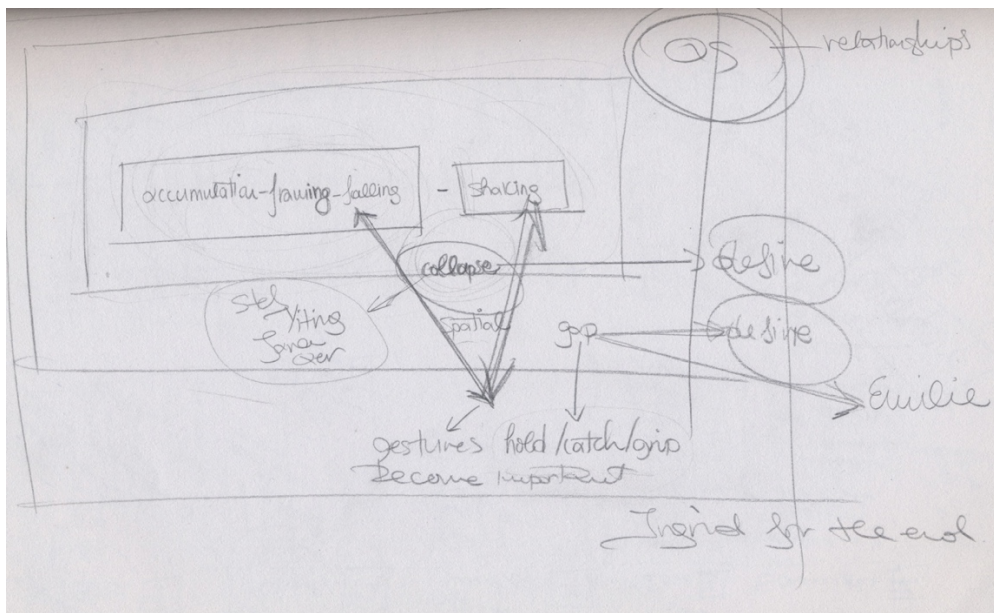 OS
relationships
accumulation-framing-falling - shaking
collapse
desire
spatial
gap
desire
Emilie
gestures hold/catch/grip
Become important
Ingrid for the end